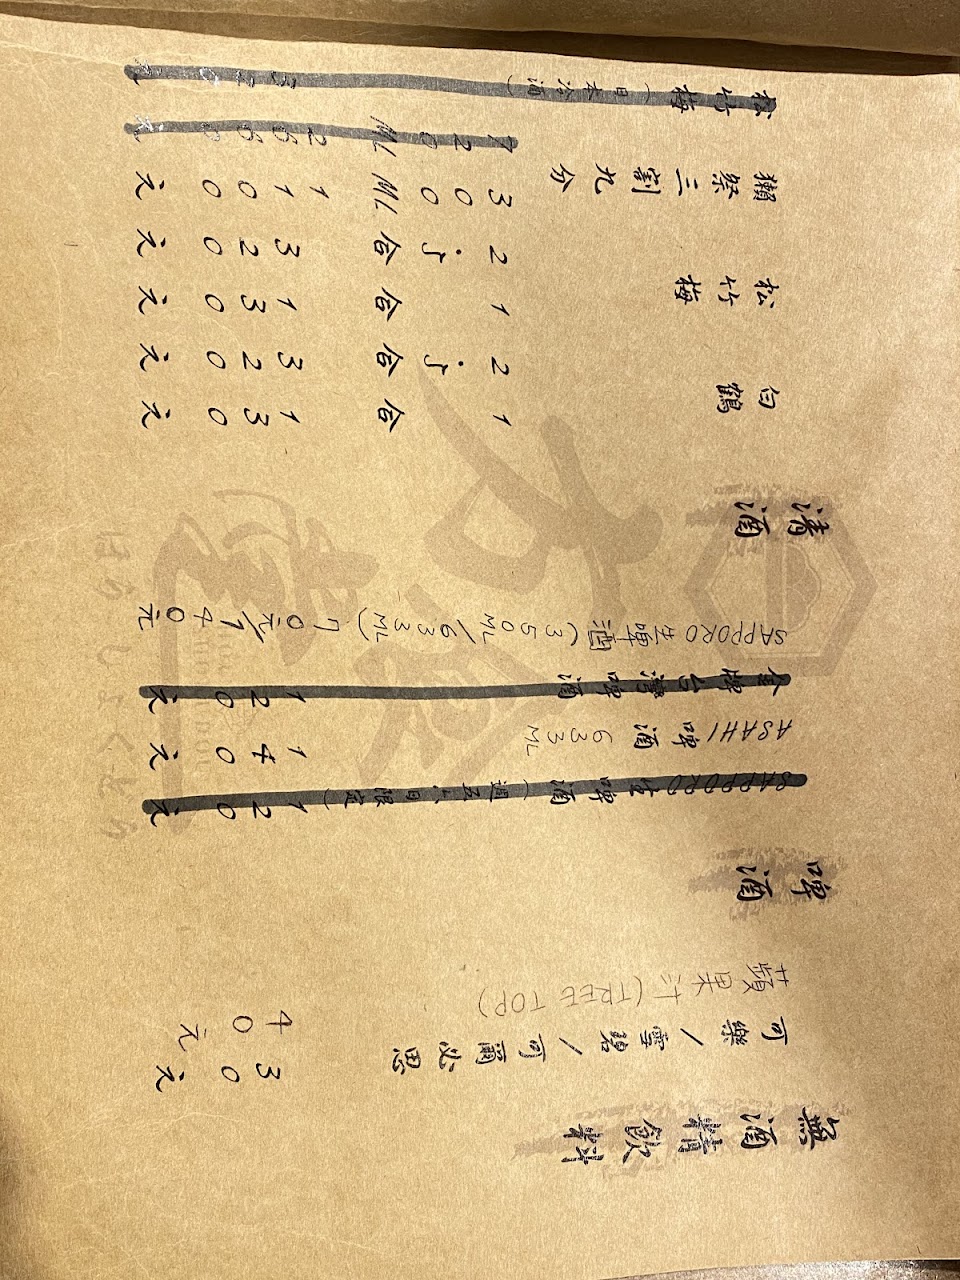 無酒精飲料
可樂/雪碧/可爾必思 30元
蘋果汁(TREE TOP) 40元
啤酒
SAPPORO生啤酒(週五六日限定) 120元
ASAHI啤酒 633ML 140元
金牌台灣啤酒 120元
SAPPORO生啤酒(350ML/633ML) 70元/140元
清酒
白鶴 1合 130元
2.5合 320元
松竹梅 1合 130元
2.5合 320元
獺祭三割九分 300ML 1100元
720ML 元
松竹梅(日本冷酒) 元